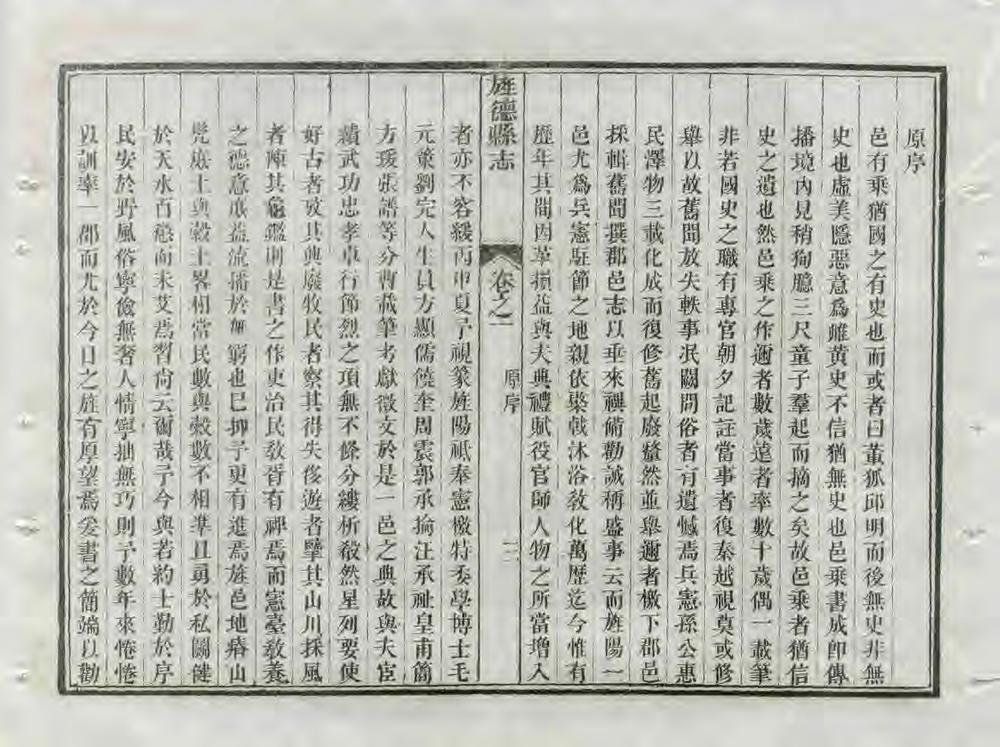 原序
邑有乘猶國之有史也而或者曰董狐邱明而後無史非無
史也虛美隱惡意爲雌黃史不信猶無史也邑乘書成卽傳
播境內見稍狥臆三尺童子羣起而摘之矣故邑乘者猶信
史之遺也然邑乘之作邇者數歲遠者率數十歲偶一載筆
非若國史之職有專官朝夕記註當事者復秦越視莫或修
舉以故舊聞放失軼事泯闕問俗者有遺憾焉兵憲孫公惠
民澤物三載化成而復修舊起廢犛然並舉邇者檄下郡邑
採輯舊聞撰郡邑志以垂來禩備勸誡稱盛事云而旌陽一
邑尤爲兵憲駐節之地親依棨戟沐浴敎化萬歷迄今惟有
歷年其間因革損益與夫典禮賦役官師人物之所當增入
旌德縣志
卷之一
原序
者亦不容緩丙申夏予視篆旌陽祗奉憲檄特委學博士毛
元策劉完人生員方顯儒饒奎周震郭承掄汪承祉皇甫簡
方瑗張譜等分曹載筆考獻徵文於是一邑之典故與夫宦
績武功忠孝卓行節烈之項無不條分縷析殺然星列要使
好古者攷其興廢牧民者察其得失後遊者擥其山川採風
者陳其龜鑑則是書之作吏治民敎胥有裨焉而憲臺敎養
之德意庶益流播於無窮也巳抑予更有進焉旌邑地瘠山
兠底土與穀土畧相當民數與穀數不相準且勇於私鬬健
於天水百憊而未艾焉習尙云爾哉予今與若約士勤於序
民安於野風俗寧儉無奢人情寧拙無巧則予數年來惓惓
以訓率一郡而尤於今日之旌有厚望焉爰書之簡端以勸